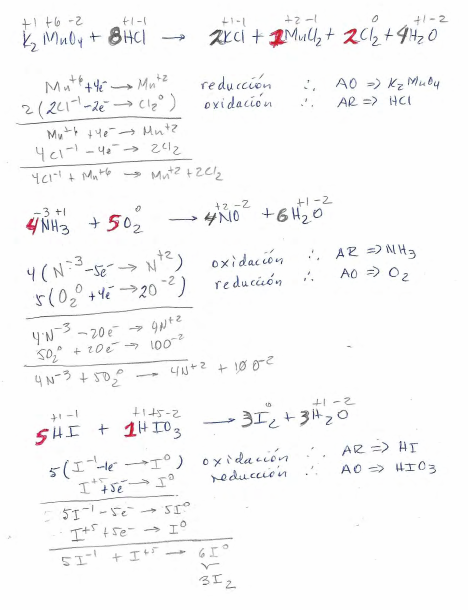 +1 +6 -2 +1 -1 +1 -1 +2 -1 0 +1 -2
K2MnO4 + 8HCl → 2KCl + 1MnCl2 + 2Cl2 + 4H2O
Mn+6 +4e- → Mn+2 reducción ∴ AO => K2MnO4
2(2Cl-1 -2e- → Cl2 0) oxidación ∴ AR => HCl
Mn+6 +4e- → Mn+2
4Cl-1 -4e- → 2Cl2
4Cl-1 + Mn+6 → Mn+2 + 2Cl2
-3 +1 0 +2 -2 +1 -2
4NH3 + 5O2 → 4NO + 6H2O
4(N-3 -5e- → N+2) oxidación ∴ AR => NH3
5(O2 0 +4e- → 2O-2) reducción ∴ AO => O2
4N-3 -20e- → 4N+2
5O2 0 + 20e- → 10O-2
4N-3 + 5O2 0 → 4N+2 + 10O-2
+1 -1 +1 +5 -2 0 +1 -2
5HI + 1HIO3 → 3I2 + 3H2O
5(I-1 -1e- → I0) oxidación ∴ AR => HI
I+5 +5e- → I0 reducción ∴ AO => HIO3
5I-1 -5e- → 5I0
I+5 +5e- → I0
5I-1 + I+5 → 6I0
3I2